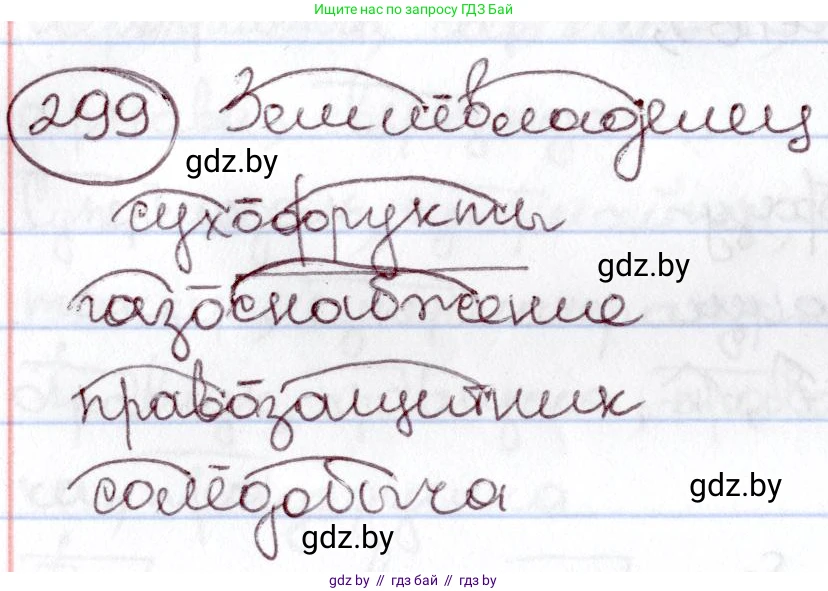 Ищите нас по запросу ГДЗ Бай
299 Землевладелец
gdz.by
сухофрукты
gdz.by
газоснабжение
правозащитник
соледобыча
gdz.by
gdz.by
gdz.by // гдз бай // гдз by